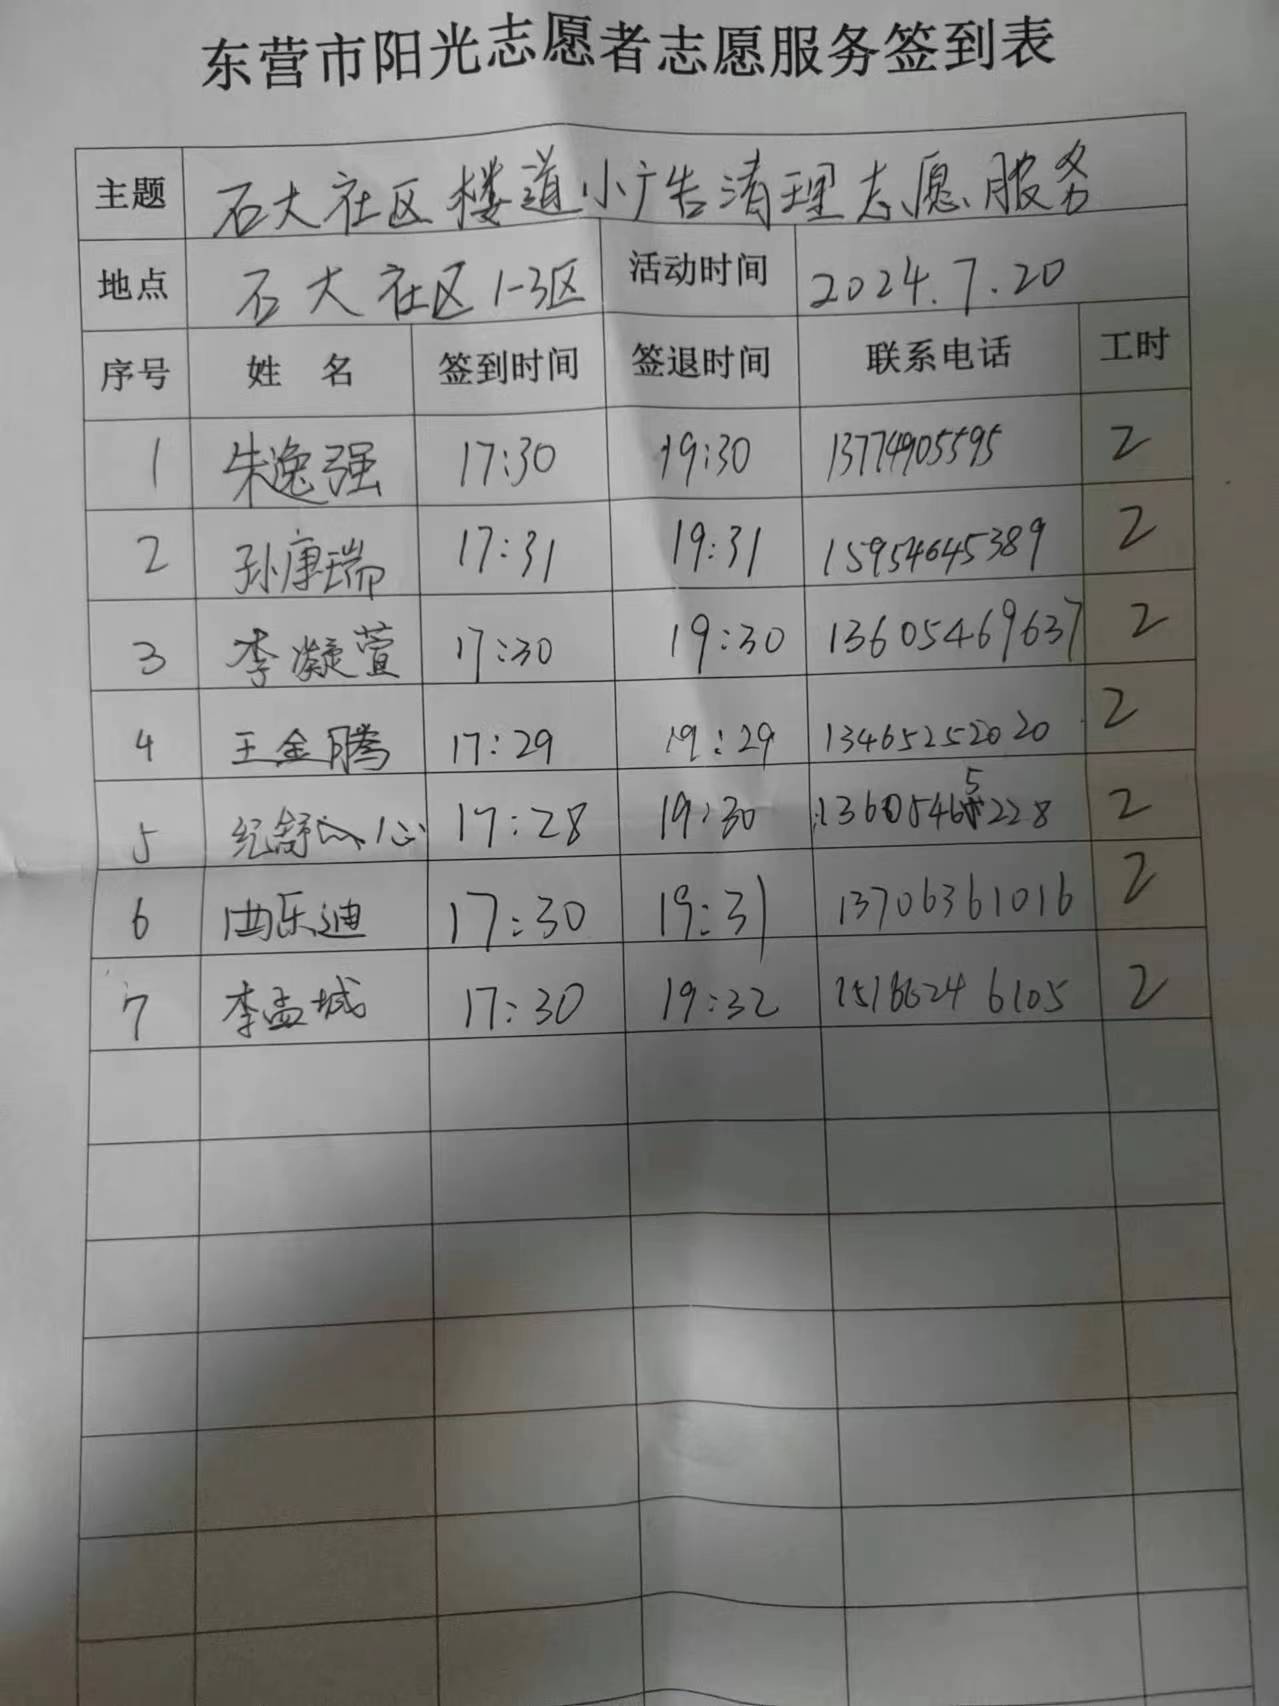 东营市阳光志愿者志愿服务签到表
主题 石大社区楼道小广告清理志愿服务
地点 石大社区1-3区 活动时间 2024.7.20
序号 姓 名 签到时间 签退时间 联系电话 工时
1 朱逸强 17:30 19:30 13774905595 2
2 孙康瑞 17:31 19:31 15954645389 2
3 李凝萱 17:30 19:30 13605469637 2
4 王金腾 17:29 19:29 13465252020 2
5 17:28 19:30 13605465228 2
6 曲乐迪 17:30 19:31 13706361016 2
7 李孟城 17:30 19:32 2